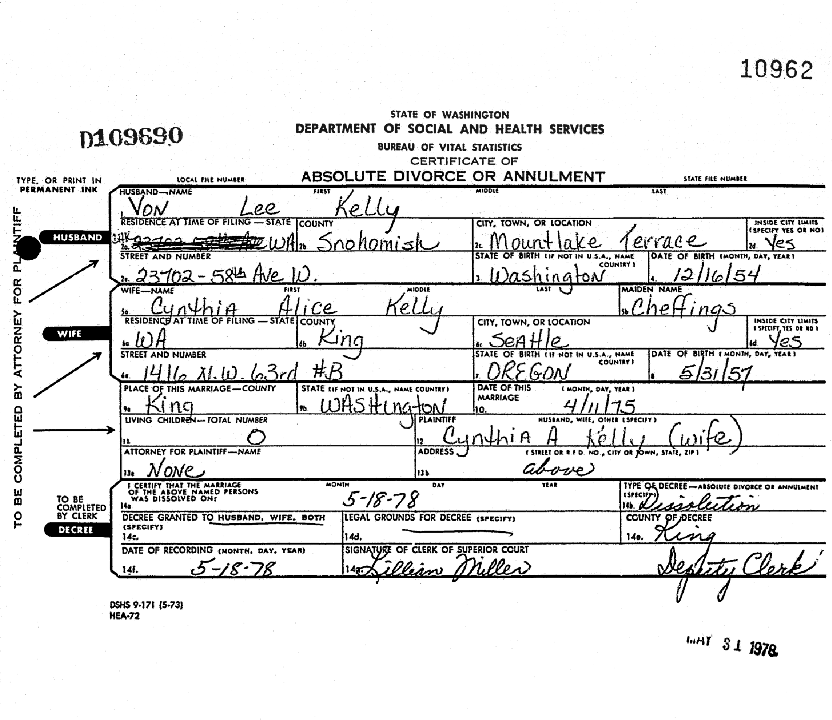 10962
STATE OF WASHINGTON
D109690 DEPARTMENT OF SOCIAL AND HEALTH SERVICES
BUREAU OF VITAL STATISTICS
CERTIFICATE OF
TYPE, OR PRINT IN PERMANENT INK LOCAL FILE NUMBER ABSOLUTE DIVORCE OR ANNULMENT STATE FILE NUMBER
TO BE COMPLETED BY ATTORNEY FOR PLAINTIFF
HUSBAND
HUSBAND—NAME FIRST MIDDLE LAST
Von Lee Kelly
RESIDENCE AT TIME OF FILING—STATE COUNTY CITY, TOWN, OR LOCATION INSIDE CITY LIMITS (SPECIFY YES OR NO)
2a. WA 2b. Snohomish 2c. Mountlake Terrace 2d. Yes
STREET AND NUMBER STATE OF BIRTH (IF NOT IN U.S.A., NAME COUNTRY) DATE OF BIRTH (MONTH, DAY, YEAR)
2e. 23702-58th Ave W. 3. Washington 4. 12/16/54
WIFE
WIFE—NAME FIRST MIDDLE LAST MAIDEN NAME
5a. Cynthia Alice Kelly 5b. Cheffings
RESIDENCE AT TIME OF FILING—STATE COUNTY CITY, TOWN, OR LOCATION INSIDE CITY LIMITS (SPECIFY YES OR NO)
6a. WA 6b. King 6c. Seattle 6d. Yes
STREET AND NUMBER STATE OF BIRTH (IF NOT IN U.S.A., NAME COUNTRY) DATE OF BIRTH (MONTH, DAY, YEAR)
6e. 1416 N.W. 63rd #B 7. OREGON 8. 5/31/57
PLACE OF THIS MARRIAGE—COUNTY STATE (IF NOT IN U.S.A., NAME COUNTRY) DATE OF THIS MARRIAGE (MONTH, DAY, YEAR)
9a. King 9b. WASHington 10. 4/11/75
LIVING CHILDREN—TOTAL NUMBER PLAINTIFF HUSBAND, WIFE, OTHER (SPECIFY)
11. 0 12. Cynthia A Kelly (wife)
ATTORNEY FOR PLAINTIFF—NAME ADDRESS (STREET OR R.F.D. NO., CITY OR TOWN, STATE, ZIP)
13a. None 13b. above
TO BE COMPLETED BY CLERK
DECREE
I CERTIFY THAT THE MARRIAGE OF THE ABOVE NAMED PERSONS WAS DISSOLVED ON: MONTH DAY YEAR TYPE OF DECREE—ABSOLUTE DIVORCE OR ANNULMENT (SPECIFY)
14a. 5-18-78 14b. Dissolution
DECREE GRANTED TO HUSBAND, WIFE, BOTH (SPECIFY) LEGAL GROUNDS FOR DECREE (SPECIFY) COUNTY OF DECREE
14c. 14d. 14e. King
DATE OF RECORDING (MONTH, DAY, YEAR) SIGNATURE OF CLERK OF SUPERIOR COURT
14f. 5-18-78 14g. Lillian Miller Deputy Clerk
DSHS 9-171 (5-73)
HEA-72
MAY 31 1978